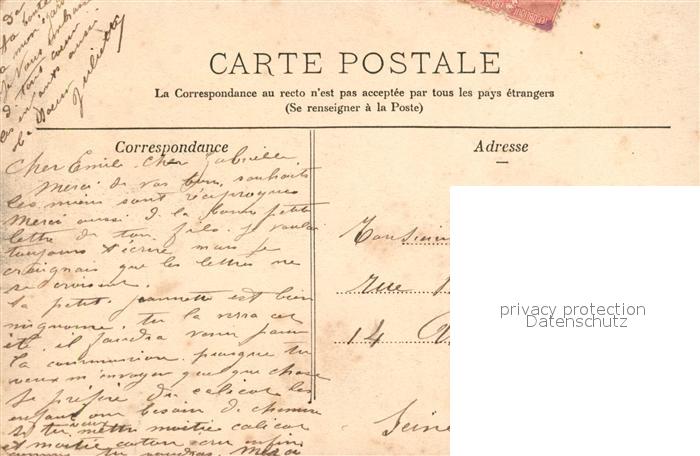 CARTE POSTALE
La Correspondance au recto n'est pas acceptée par tous les pays étrangers
(Se renseigner à la Poste)
Correspondance
Adresse
Cher Emile Cher Gabrielle
Merci de vos bons souhaits
les miens sont réciproques
Merci aussi d. la bonne petite
lettre de ton fils. Je voulai
toujours t'écrire mais je
craignais que les lettres ne
se croisent.
la petite Jeannette est bien
mignonne. tu la verra cet
et il faudra venir pour
la communion. puisque tu
veux m'envoyer quelque chose
je préfère du calicot les
enfant ont besoin de chemise
si tu veux mettre moitié calicot
et moitié coton écru enfin
comme tu voudras. Merci
de
ta bonté
je vous embrasse
d. tout coeur
les enfants aussi
ta Soeur
Juliette
Monsieur
rue
14
Seine
privacy protection
Datenschutz